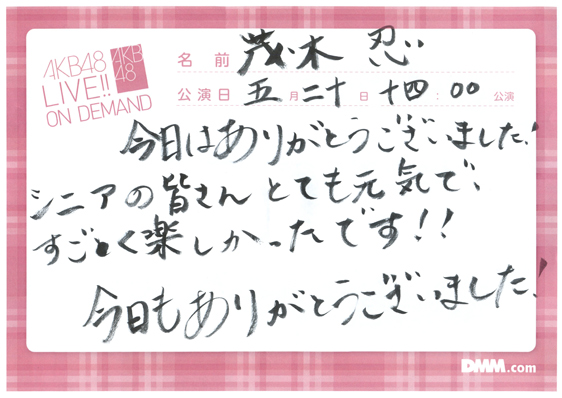 AKB48
LIVE!!
ON DEMAND
AKB
48
名前 茂木 忍
公演日 五月二十日 十四:00 公演
今日はありがとうございました!
シニアの皆さんとても元気で、
すごく楽しかったです!!
今日もありがとうございました!
DMM.com